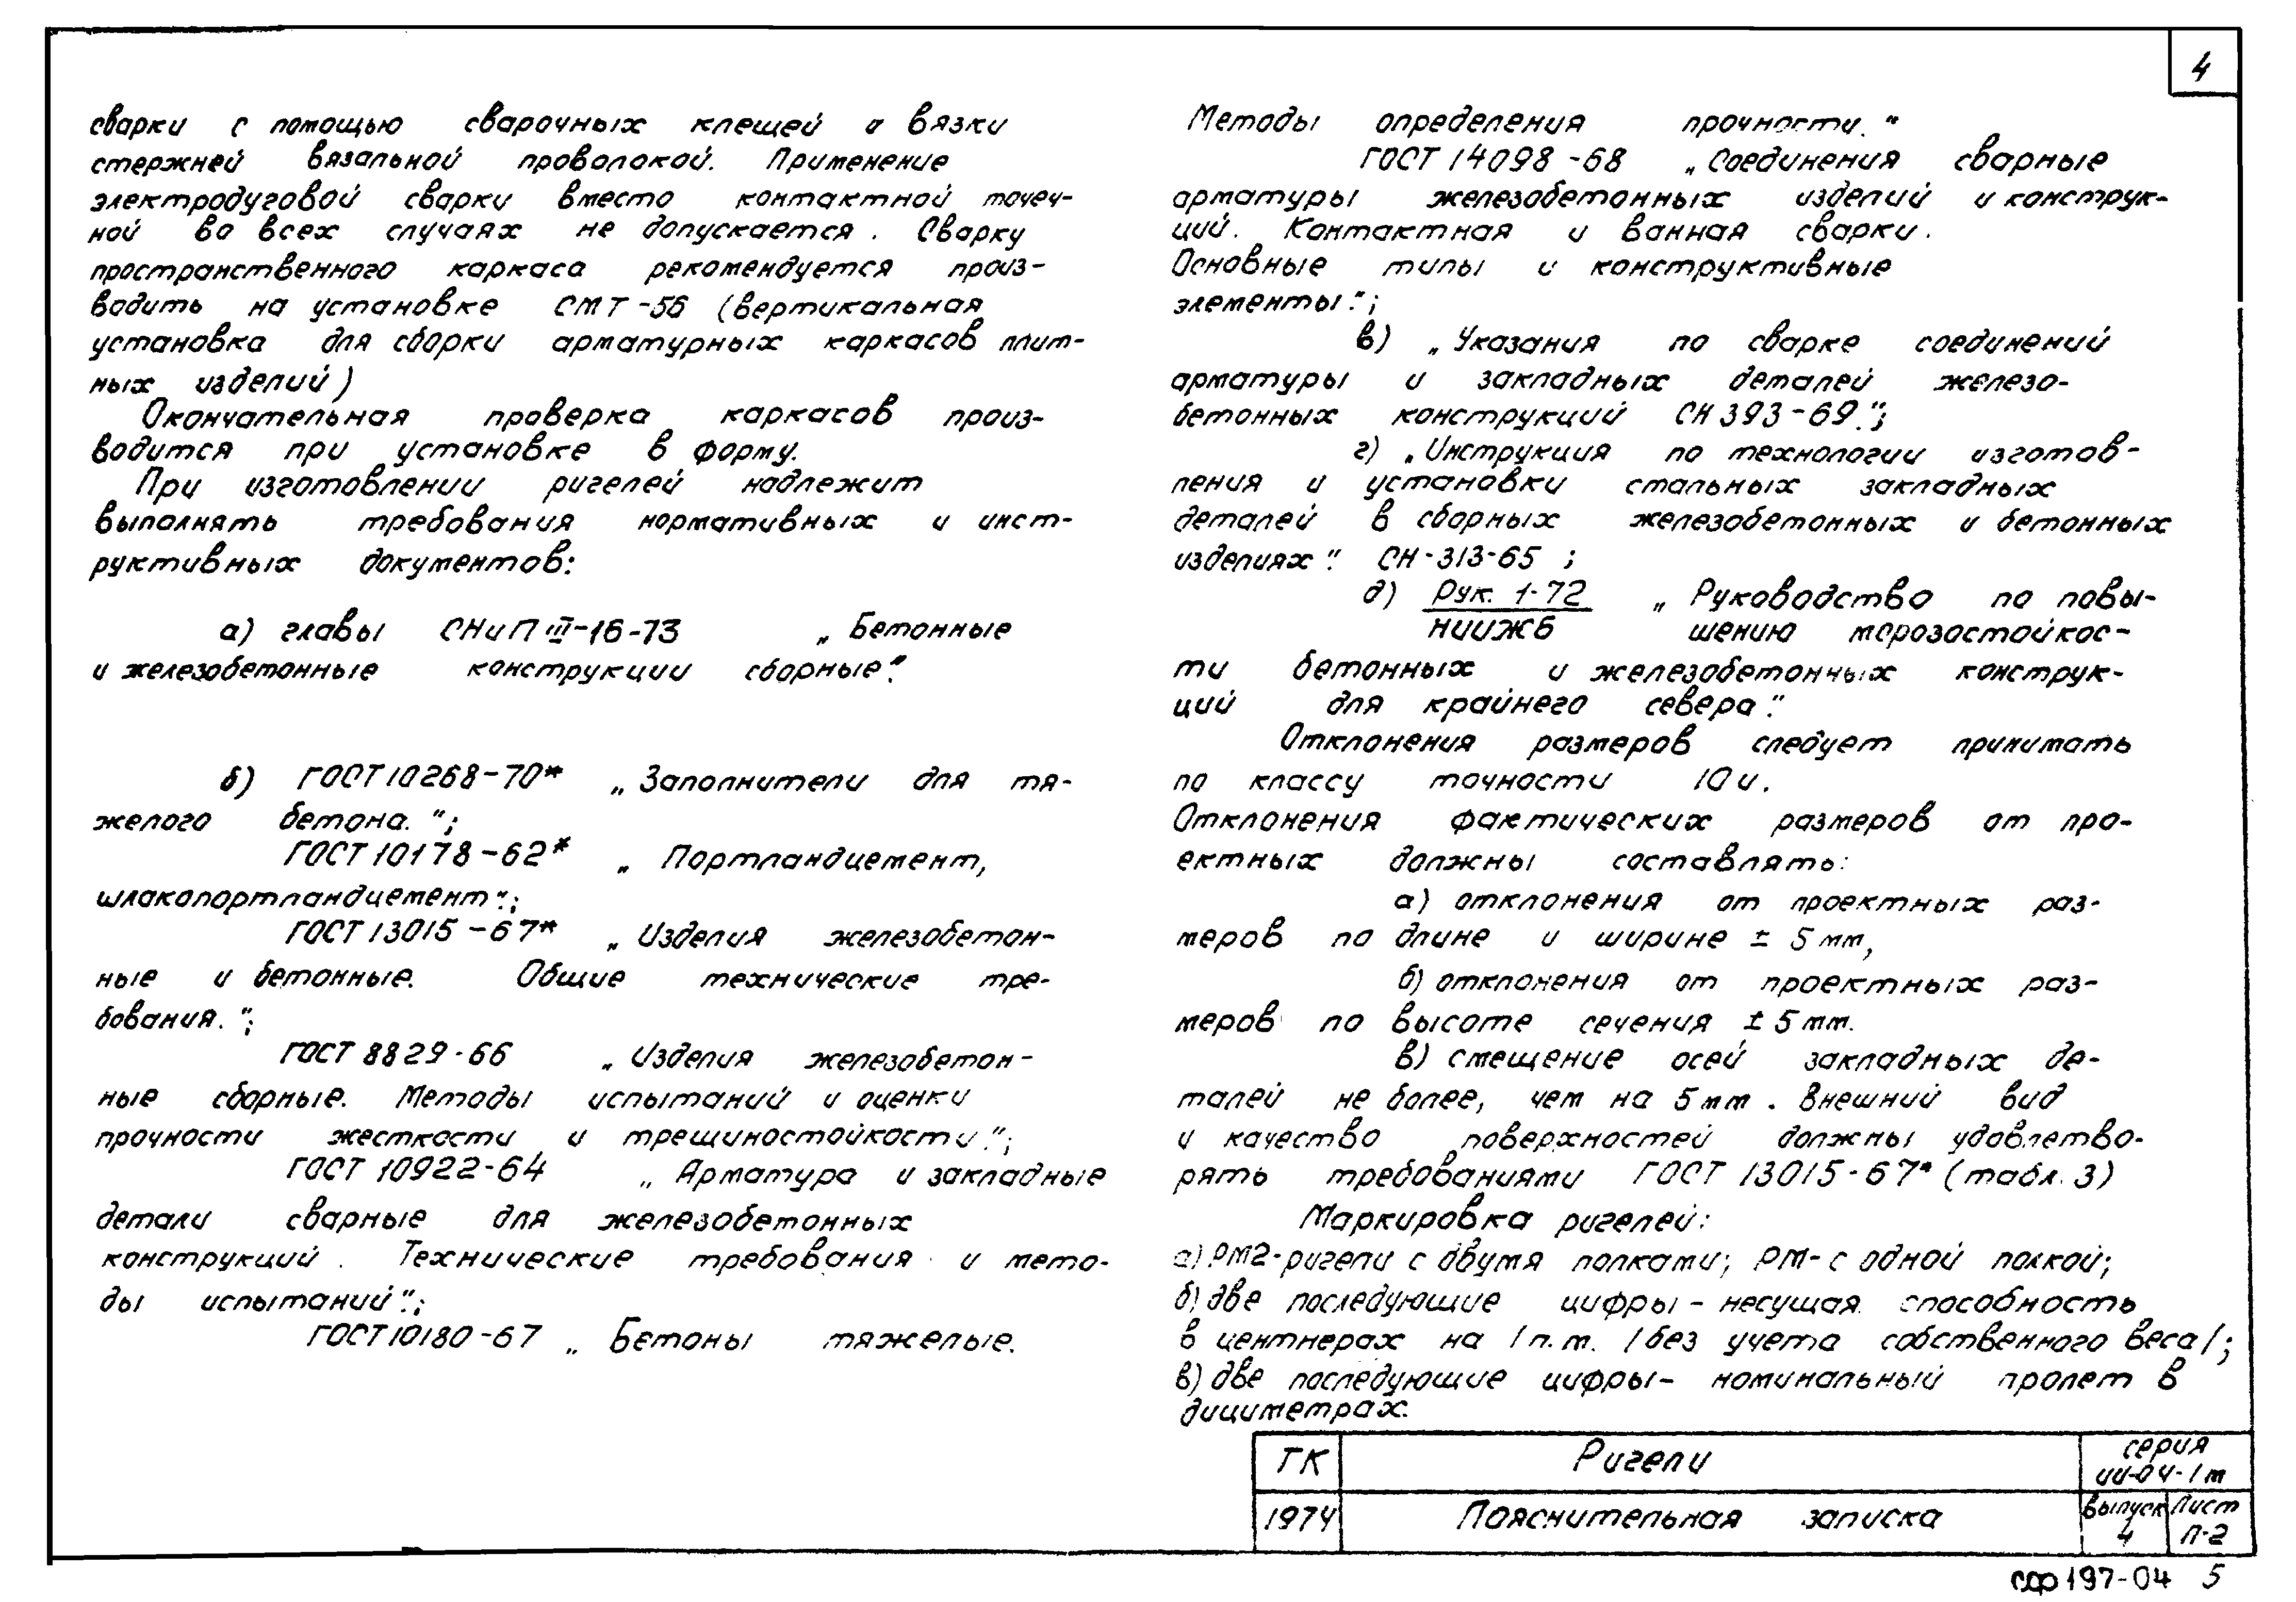 4
сварки с помощью сварочных клещей и вязки
стержней вязальной проволокой. Применение
электродуговой сварки вместо контактной точеч-
ной во всех случаях не допускается. Сварку
пространственного каркаса рекомендуется произ-
водить на установке СМТ-56 (вертикальная
установка для сборки арматурных каркасов плит-
ных изделий)
Окончательная проверка каркасов произ-
водится при установке в форму.
При изготовлении ригелей надлежит
выполнять требования нормативных и инст-
руктивных документов:
а) главы СНиП III-16-73 „Бетонные
и железобетонные конструкции сборные".
б) ГОСТ 10268-70* „Заполнители для тя-
желого бетона.";
ГОСТ 10178-62* „Портландцемент,
шлакопортландцемент.";
ГОСТ 13015-67* „Изделия железобетон-
ные и бетонные. Общие технические тре-
бования.";
ГОСТ 8829-66 „Изделия железобетон-
ные сборные. Методы испытаний и оценки
прочности жесткости и трещиностойкости.";
ГОСТ 10922-64 „Арматура и закладные
детали сварные для железобетонных
конструкций. Технические требования и мето-
ды испытаний.";
ГОСТ 10180-67 „Бетоны тяжелые.
Методы определения прочности."
ГОСТ 14098-68 „Соединения сварные
арматуры железобетонных изделий и конструк-
ций. Контактная и ванная сварки.
Основные типы и конструктивные
элементы.";
в) „Указания по сварке соединений
арматуры и закладных деталей железо-
бетонных конструкций СН 393-69.";
г) „Инструкция по технологии изготов-
ления и установки стальных закладных
деталей в сборных железобетонных и бетонных
изделиях". СН-313-65;
д) Рук. 1-72 „Руководство по повы-
НИИЖБ шению морозостойкос-
ти бетонных и железобетонных конструк-
ций для крайнего севера."
Отклонения размеров следует принимать
по классу точности 10и.
Отклонения фактических размеров от про-
ектных должны составлять:
а) отклонения от проектных раз-
меров по длине и ширине ± 5 мм,
б) отклонения от проектных раз-
меров по высоте сечения ± 5 мм.
в) смещение осей закладных де-
талей не более, чем на 5 мм. Внешний вид
и качество поверхностей должны удовлетво-
рять требованиями ГОСТ 13015-67* (табл. 3)
Маркировка ригелей:
а) РМ2-ригели с двумя полками; РМ-с одной полкой;
б) две последующие цифры - несущая способность
в центнерах на 1 п.м. /без учета собственного веса/;
в) две последующие цифры - номинальный пролет в
дициметрах.
ТК Ригели серия
ИИ-04-1м
1974 Пояснительная записка выпуск Лист
4 П-2
сф 197-04 5